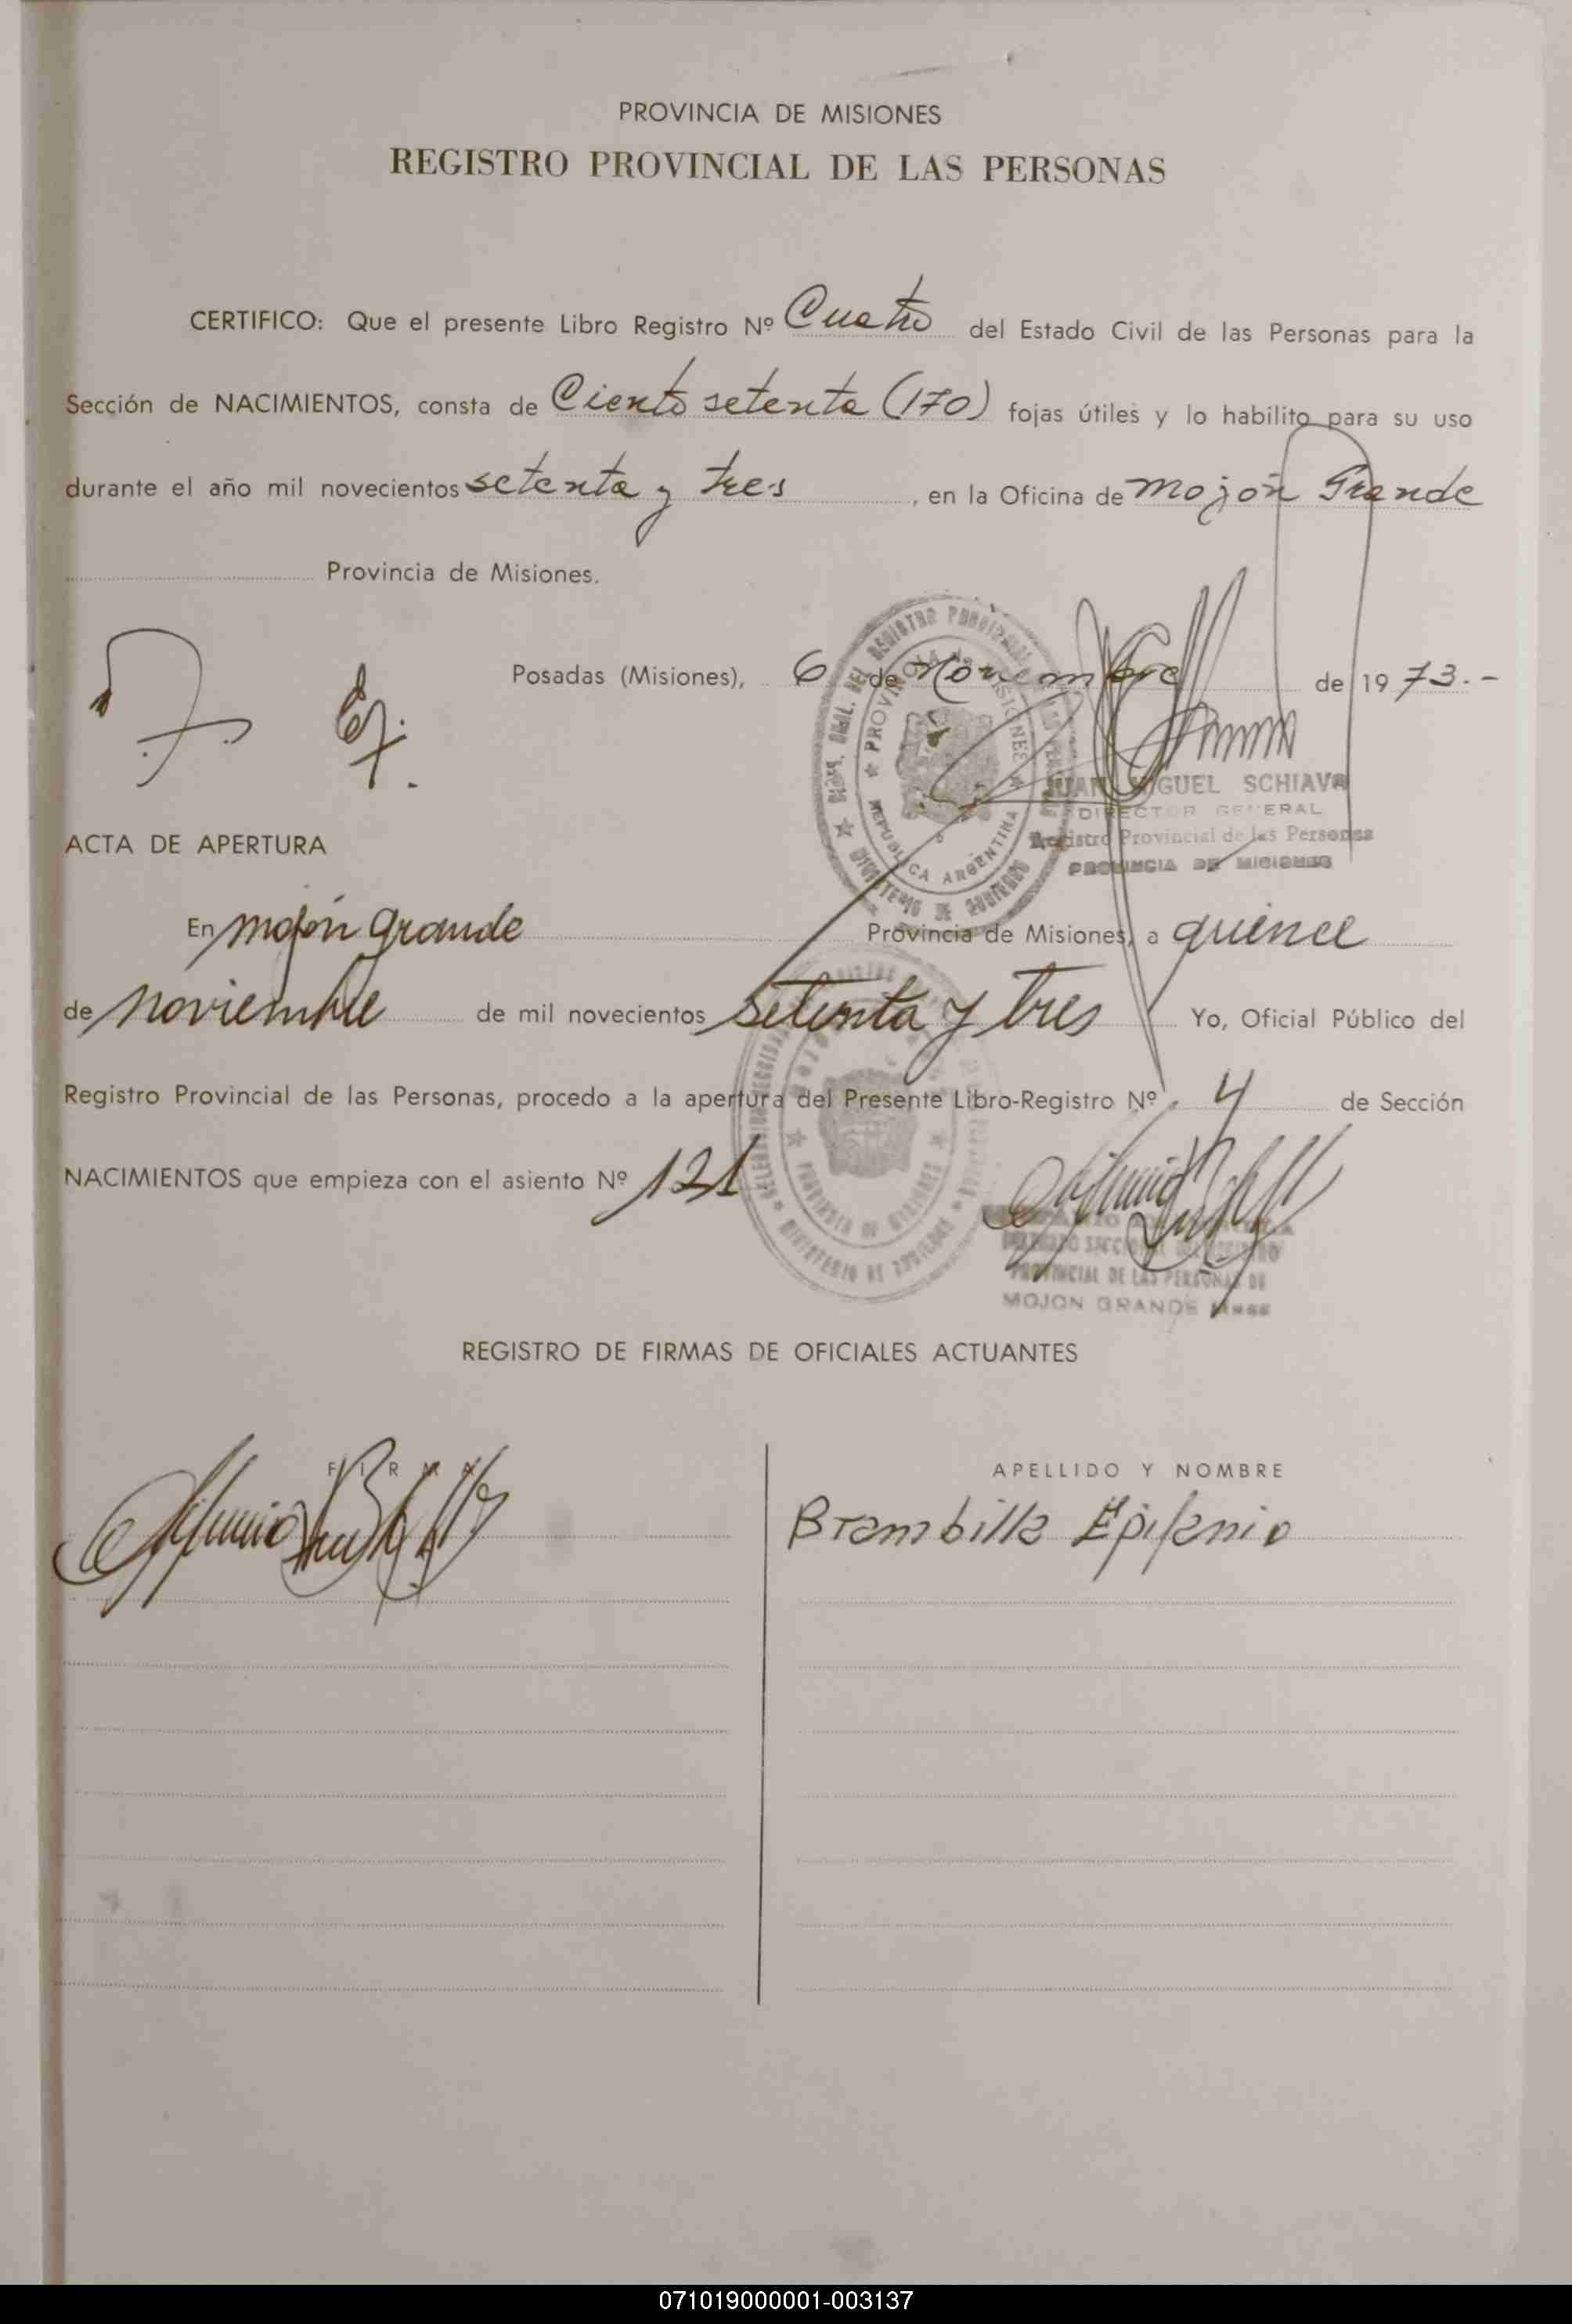 PROVINCIA DE MISIONES
REGISTRO PROVINCIAL DE LAS PERSONAS
CERTIFICO: Que el presente Libro Registro Nº Cuatro del Estado Civil de las Personas para la
Sección de NACIMIENTOS, consta de Ciento setenta (170) fojas útiles y lo habilito para su uso
durante el año mil novecientos setenta y tres, en la Oficina de Mojón Grande
Provincia de Misiones.
Posadas (Misiones), 6 de Noviembre de 1973.-
JUAN MIGUEL SCHIAVO
DIRECTOR GENERAL
Registro Provincial de las Personas
PROVINCIA DE MISIONES
PROVINCIA DE MISIONES
REPUBLICA ARGENTINA
MINISTERIO DE GOBIERNO
ACTA DE APERTURA
En mojón grande Provincia de Misiones, a quince
de noviembre de mil novecientos setenta y tres Yo, Oficial Público del
Registro Provincial de las Personas, procedo a la apertura del Presente Libro-Registro Nº 4 de Sección
NACIMIENTOS que empieza con el asiento Nº 121
PROVINCIA DE MISIONES
MINISTERIO DE GOBIERNO
PROVINCIAL DE LAS PERSONAS DE
MOJON GRANDE
REGISTRO DE FIRMAS DE OFICIALES ACTUANTES
FIRMA
APELLIDO Y NOMBRE
Brambilla Epifanio
071019000001-003137